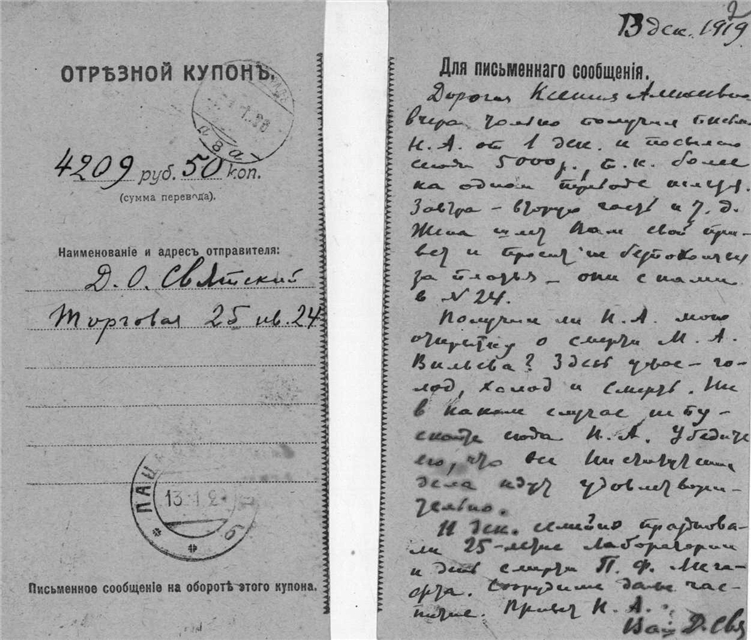 ОТРѢЗНОЙ КУПОНЪ.
4209 руб. 50 коп.
(сумма перевода).
Наименованіе и адресъ отправителя:
Д. О. Святский
Торговая 25 кв. 24
13 1 2
Письменное сообщеніе на оборотѣ этого купона.
2
13 дек. 1919
Для письменнаго сообщенія.
Дорогая Ксения
вчера только получил письмо
Н. А. от 1 дек. и посылаю
5000 р., т. к. более
на одном переводе нельзя.
Завтра – вторую часть и т. д.
Жена шлет Вам свой при-
вет и просит не беспокоиться
за – они с нами
в № 24.
Получил ли Н. А. мою
открытку о смерти М. А.
Вильева? Здесь у нас – го-
лод, холод и смерть. Ни
в каком случае не пу-
скайте сюда Н. А. Убедите
его, что все
дела идут удовлетвори-
тельно.
дек. семейно праздновa-
ли 25-летие Лаборатории
и день смерти П. Ф. Лесг-
афта. дел час-
Привет Н. А.
Ваш Д. Свя